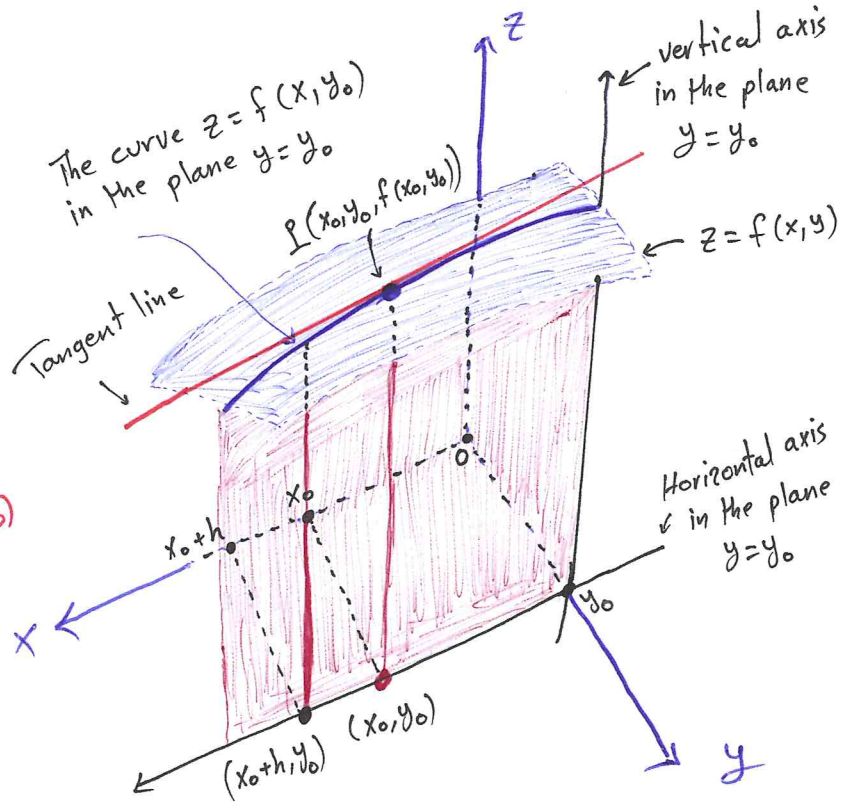 z
vertical axis
in the plane
y = y₀
The curve z = f(x, y₀)
in the plane y = y₀
P(x₀, y₀, f(x₀, y₀))
z = f(x, y)
Tangent line
0
Horizontal axis
in the plane
y = y₀
x₀
x₀+h
)
x
y₀
(x₀, y₀)
(x₀+h, y₀)
y